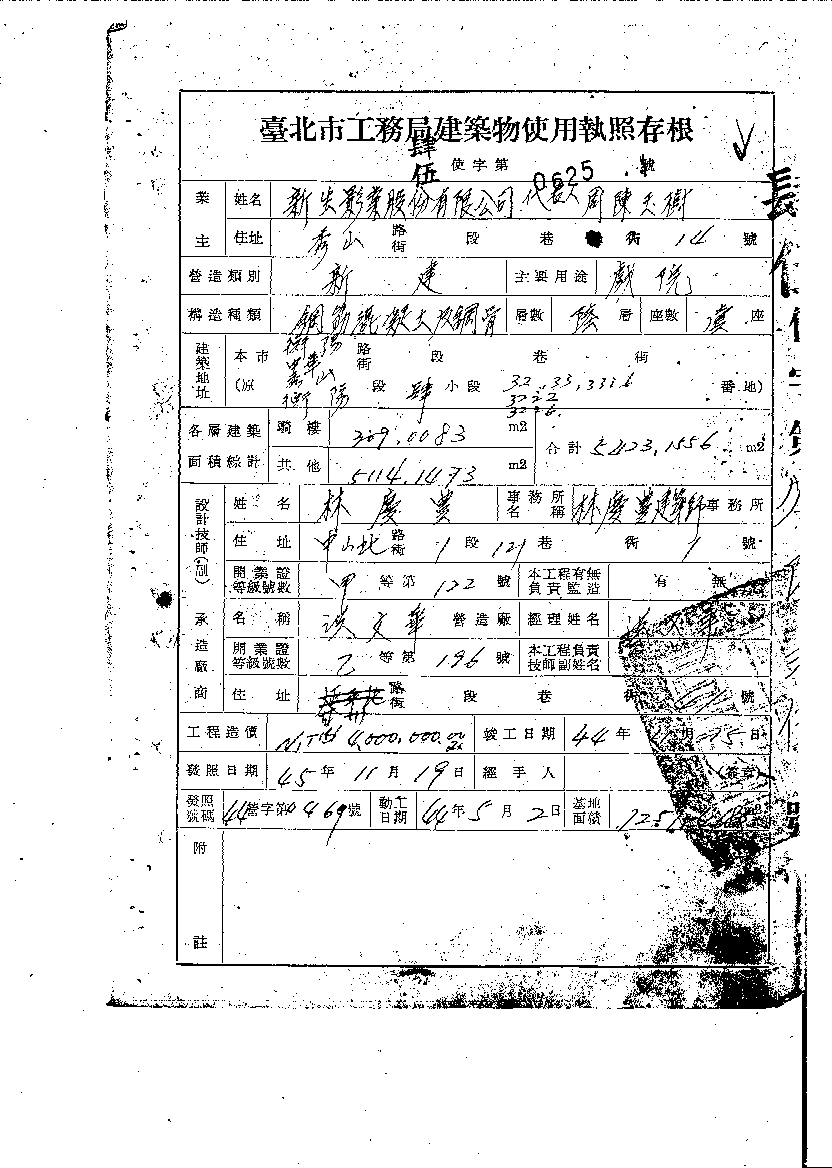 臺北市工務局建築物使用執照存根
肆伍 使字第 0625 號
業主 姓名 新生影業股份有限公司 代表人 周陳玉樹
住址 秀山 路街 段 巷 街 14 號
營造類別 新建 主要用途 戲院
構造種類 鋼筋混凝土及鋼骨 層數 陸 層 座數 壹 座
建築地址 本市 衡陽 路街 段 巷 街
(原 衡陽 段 肆 小段 32, 33, 番地)
各層建築面積綜計 騎樓 309.0083 m2 合計 5423.1556 m2
其他 5114.1473 m2
設計技師(副) 姓名 林慶豐 事務所名稱 林慶豐建築師 事務所
住址 中山北 路街 1 段 121 巷 街 1 號
開業證等級號數 甲 等第 122 號 本工程有無負責監造 有 無
承造廠商 名稱 洪文華 營造廠 經理姓名
開業證等級號數 乙 等第 196 號 本工程負責技師副姓名
住址 路街 段 巷 街 號
工程造價 NT$ 4,000,000.00 竣工日期 44年 月 日
發照日期 45年11月19日 經手人 (簽章)
發照號碼 44營字第0469號 動工日期 44年5月2日 基地面積
附註